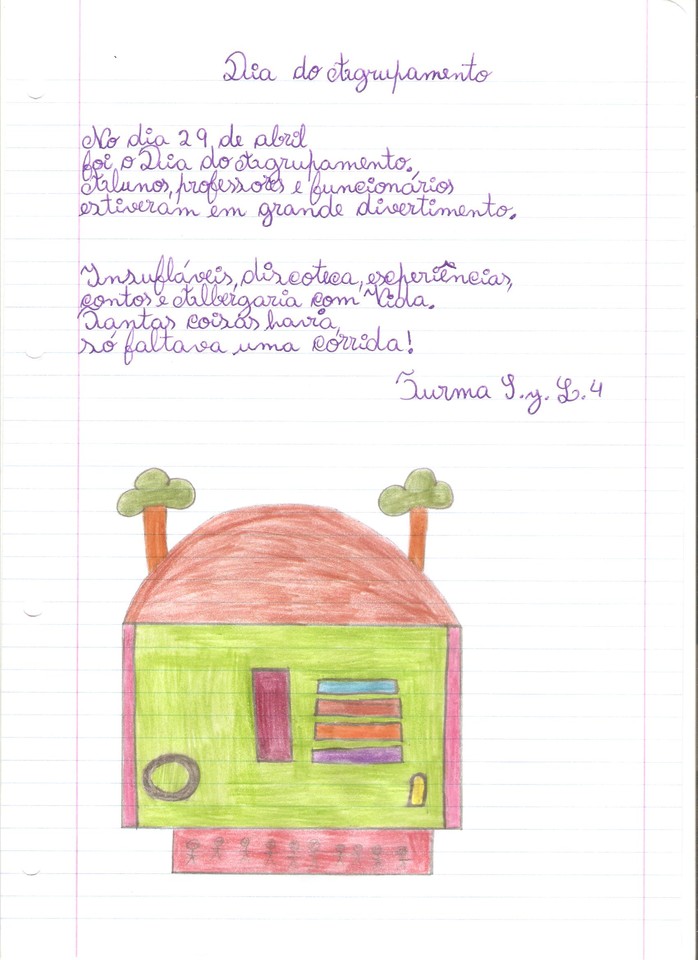 Dia do Agrupamento
No dia 29 de abril
foi o Dia do Agrupamento.
Alunos, professores e funcionários
estiveram em grande divertimento.
Insufláveis, discoteca, experiências,
contos e Albergaria com Vida.
Tantas coisas havia,
só faltava uma córrida!
Turma S.y.L.4